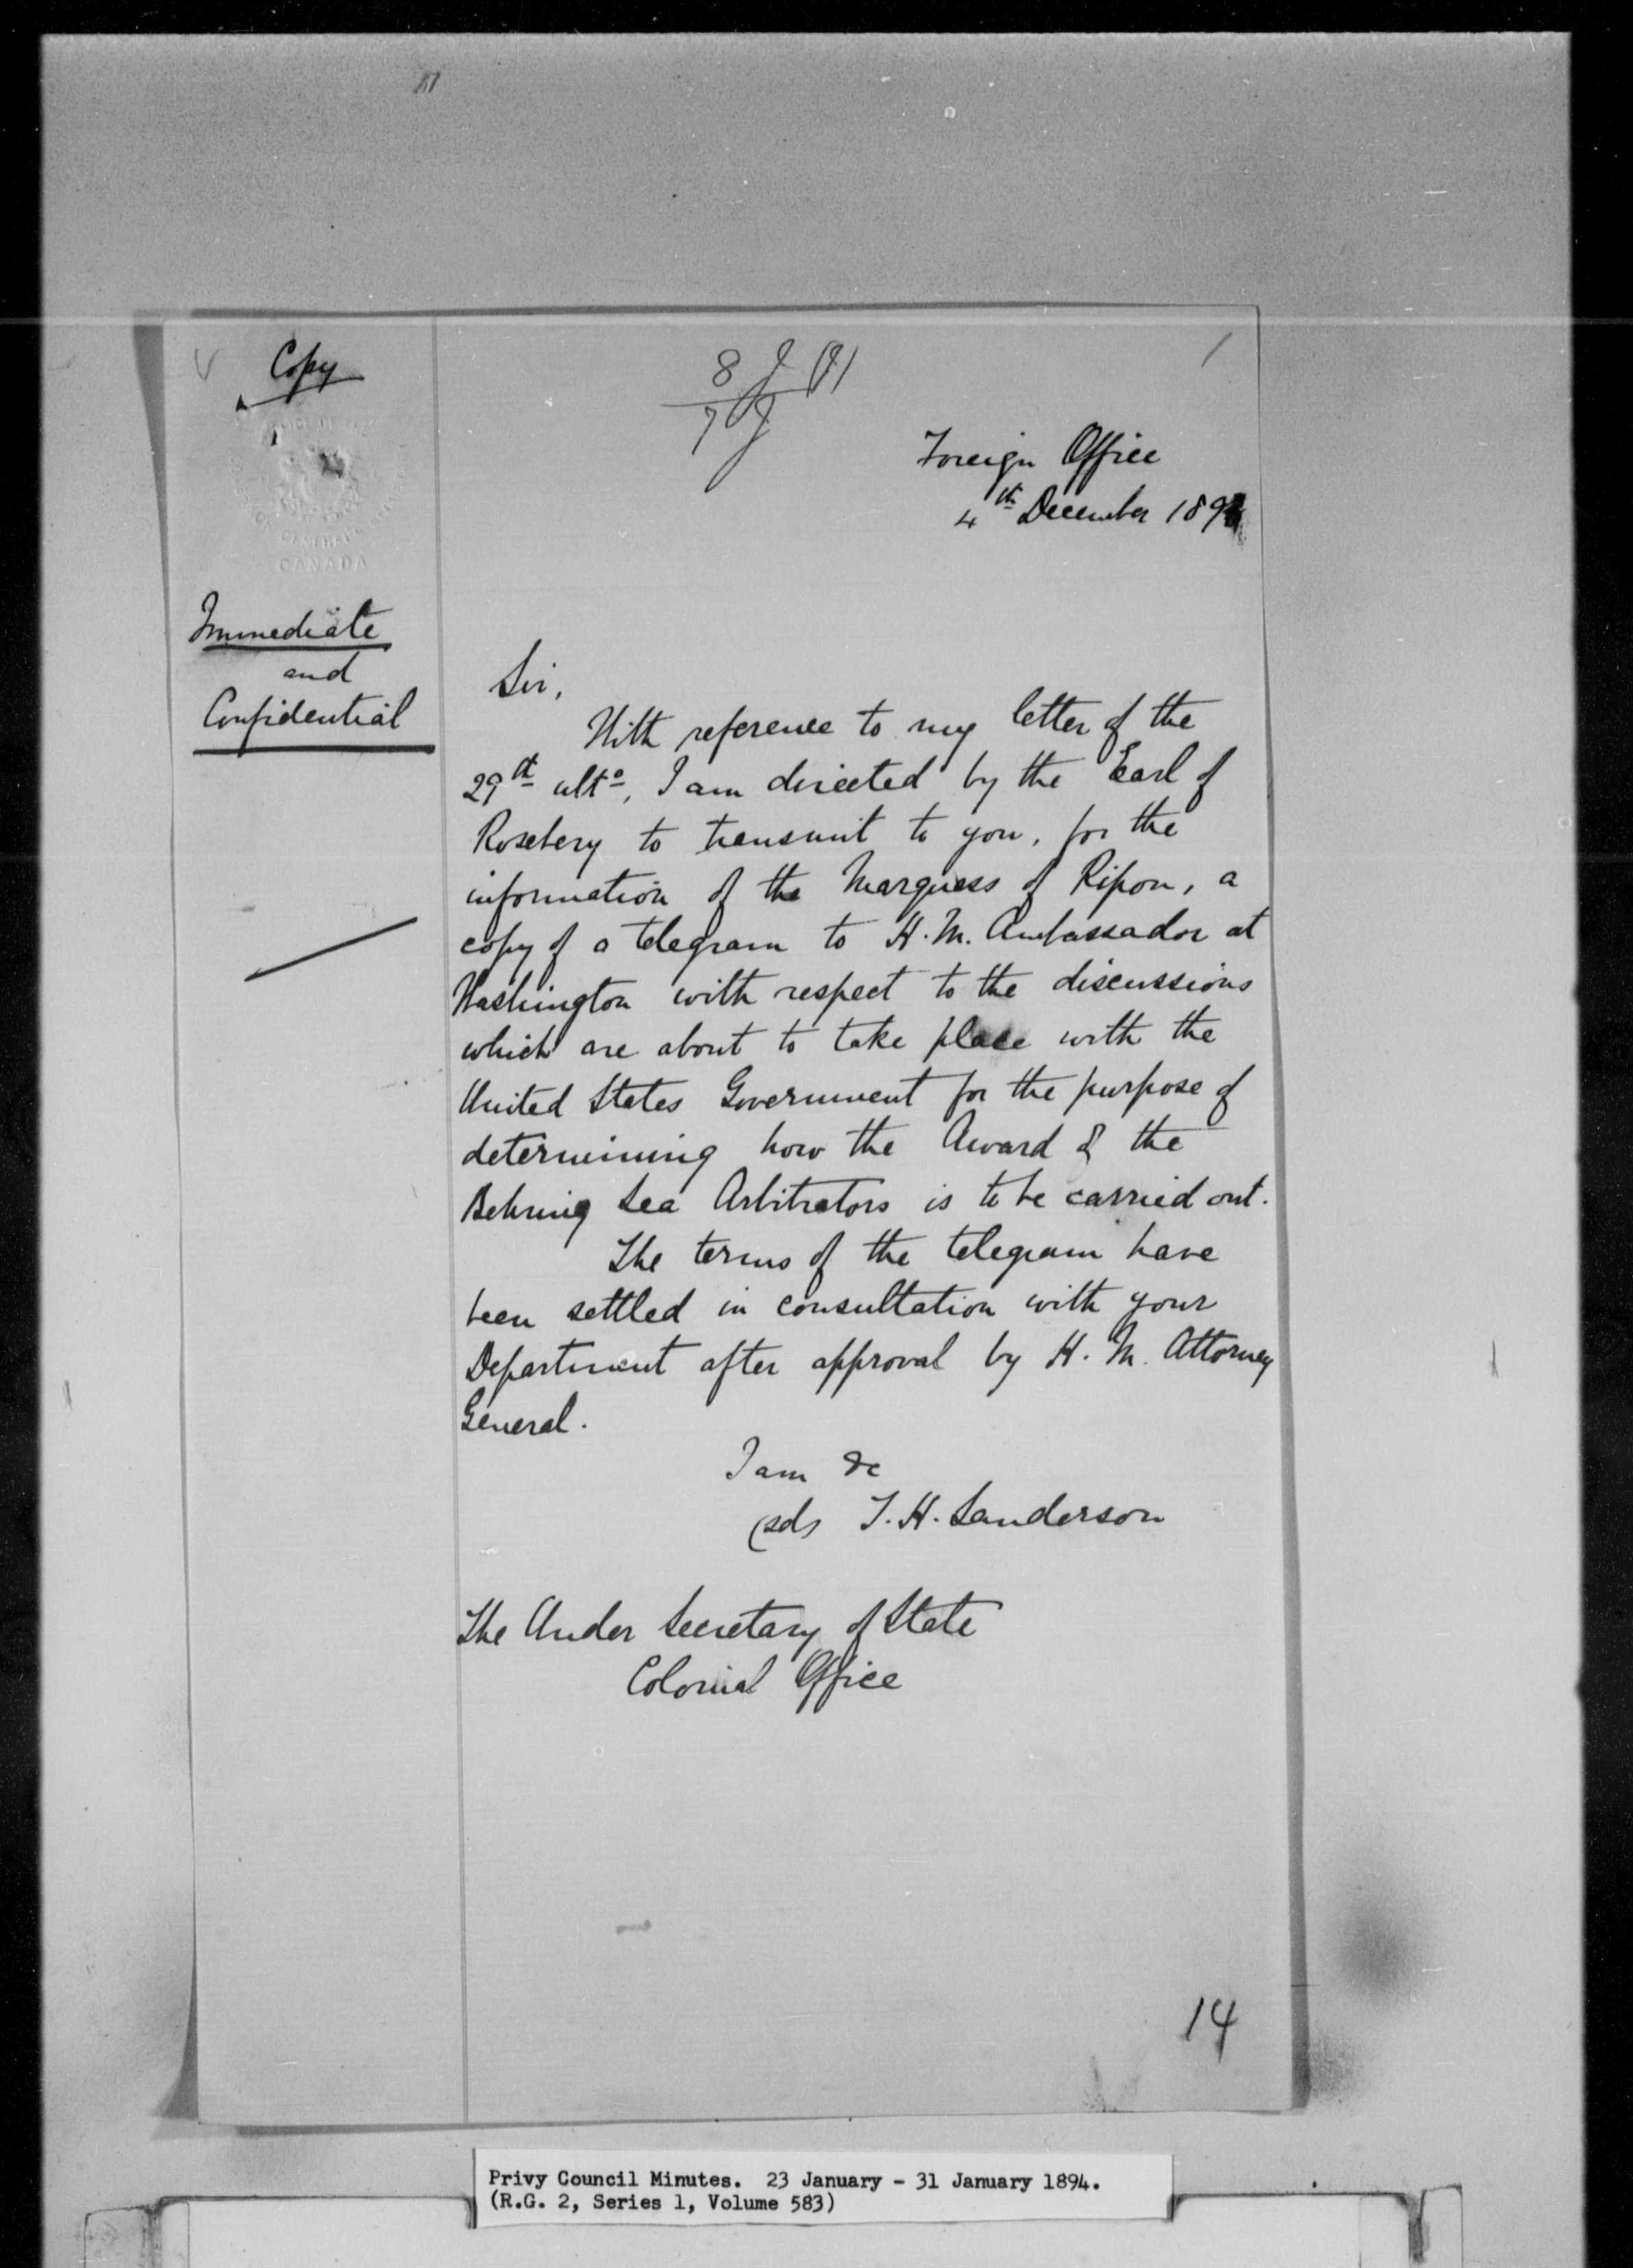 Copy
8 J
7 J
Foreign Office
4th December 189
CANADA
Immediate
and
Confidential
Sir,
With reference to my letter of the
29th ulto, I am directed by the Earl of
Rosebery to transmit to you, for the
information of the Marquess of Ripon, a
copy of a telegram to H. M. Ambassador at
Washington with respect to the discussions
which are about to take place with the
United States Government for the purpose of
determining how the Award of the
Behring Sea Arbitrators is to be carried out.
The terms of the telegram have
been settled in consultation with your
Department after approval by H. M. Attorney
General.
I am &c
(sd) T. H. Sanderson
The Under Secretary of State
Colonial Office
14
Privy Council Minutes. 23 January - 31 January 1894.
(R.G. 2, Series 1, Volume 583)